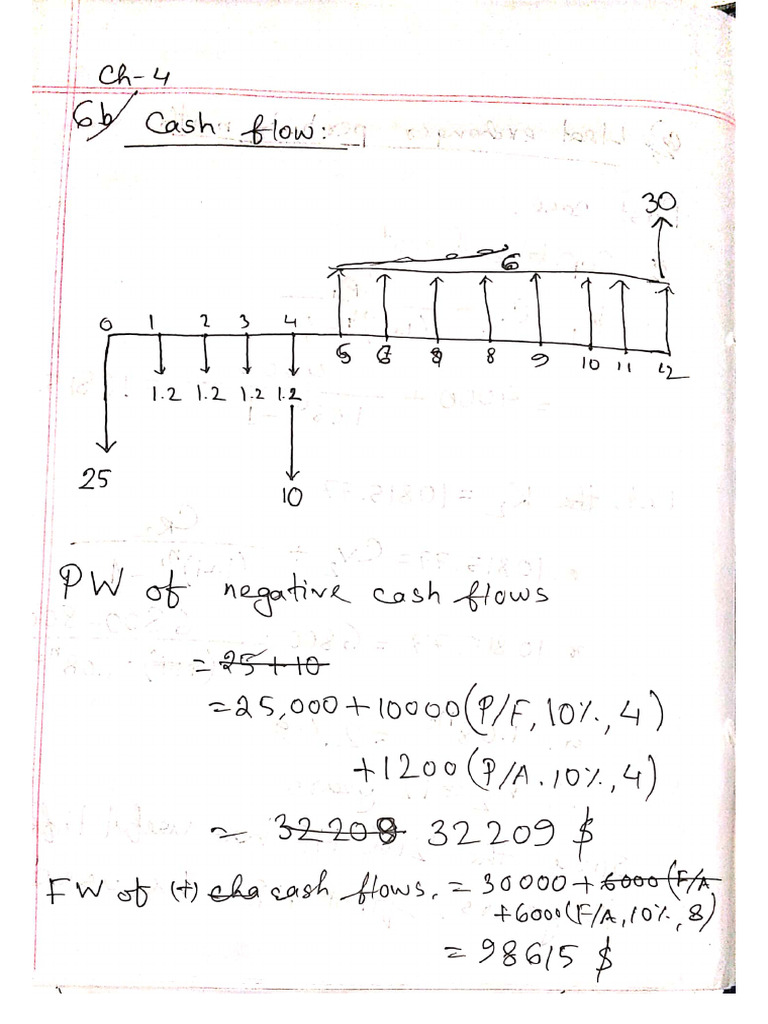 Ch-4
6b/ Cash flow:
30
6
0 1 2 3 4
5 6 7 8 9 10 11 12
1.2 1.2 1.2 1.2
25
10
PW of negative cash flows
= 25+10
= 25,000 + 10000(P/F, 10%, 4)
+1200(P/A. 10%, 4)
= 32208 32209 $
FW of (+) cha cash flows. = 30000 + 6000(F/A
+6000(F/A, 10%, 8)
= 98615 $